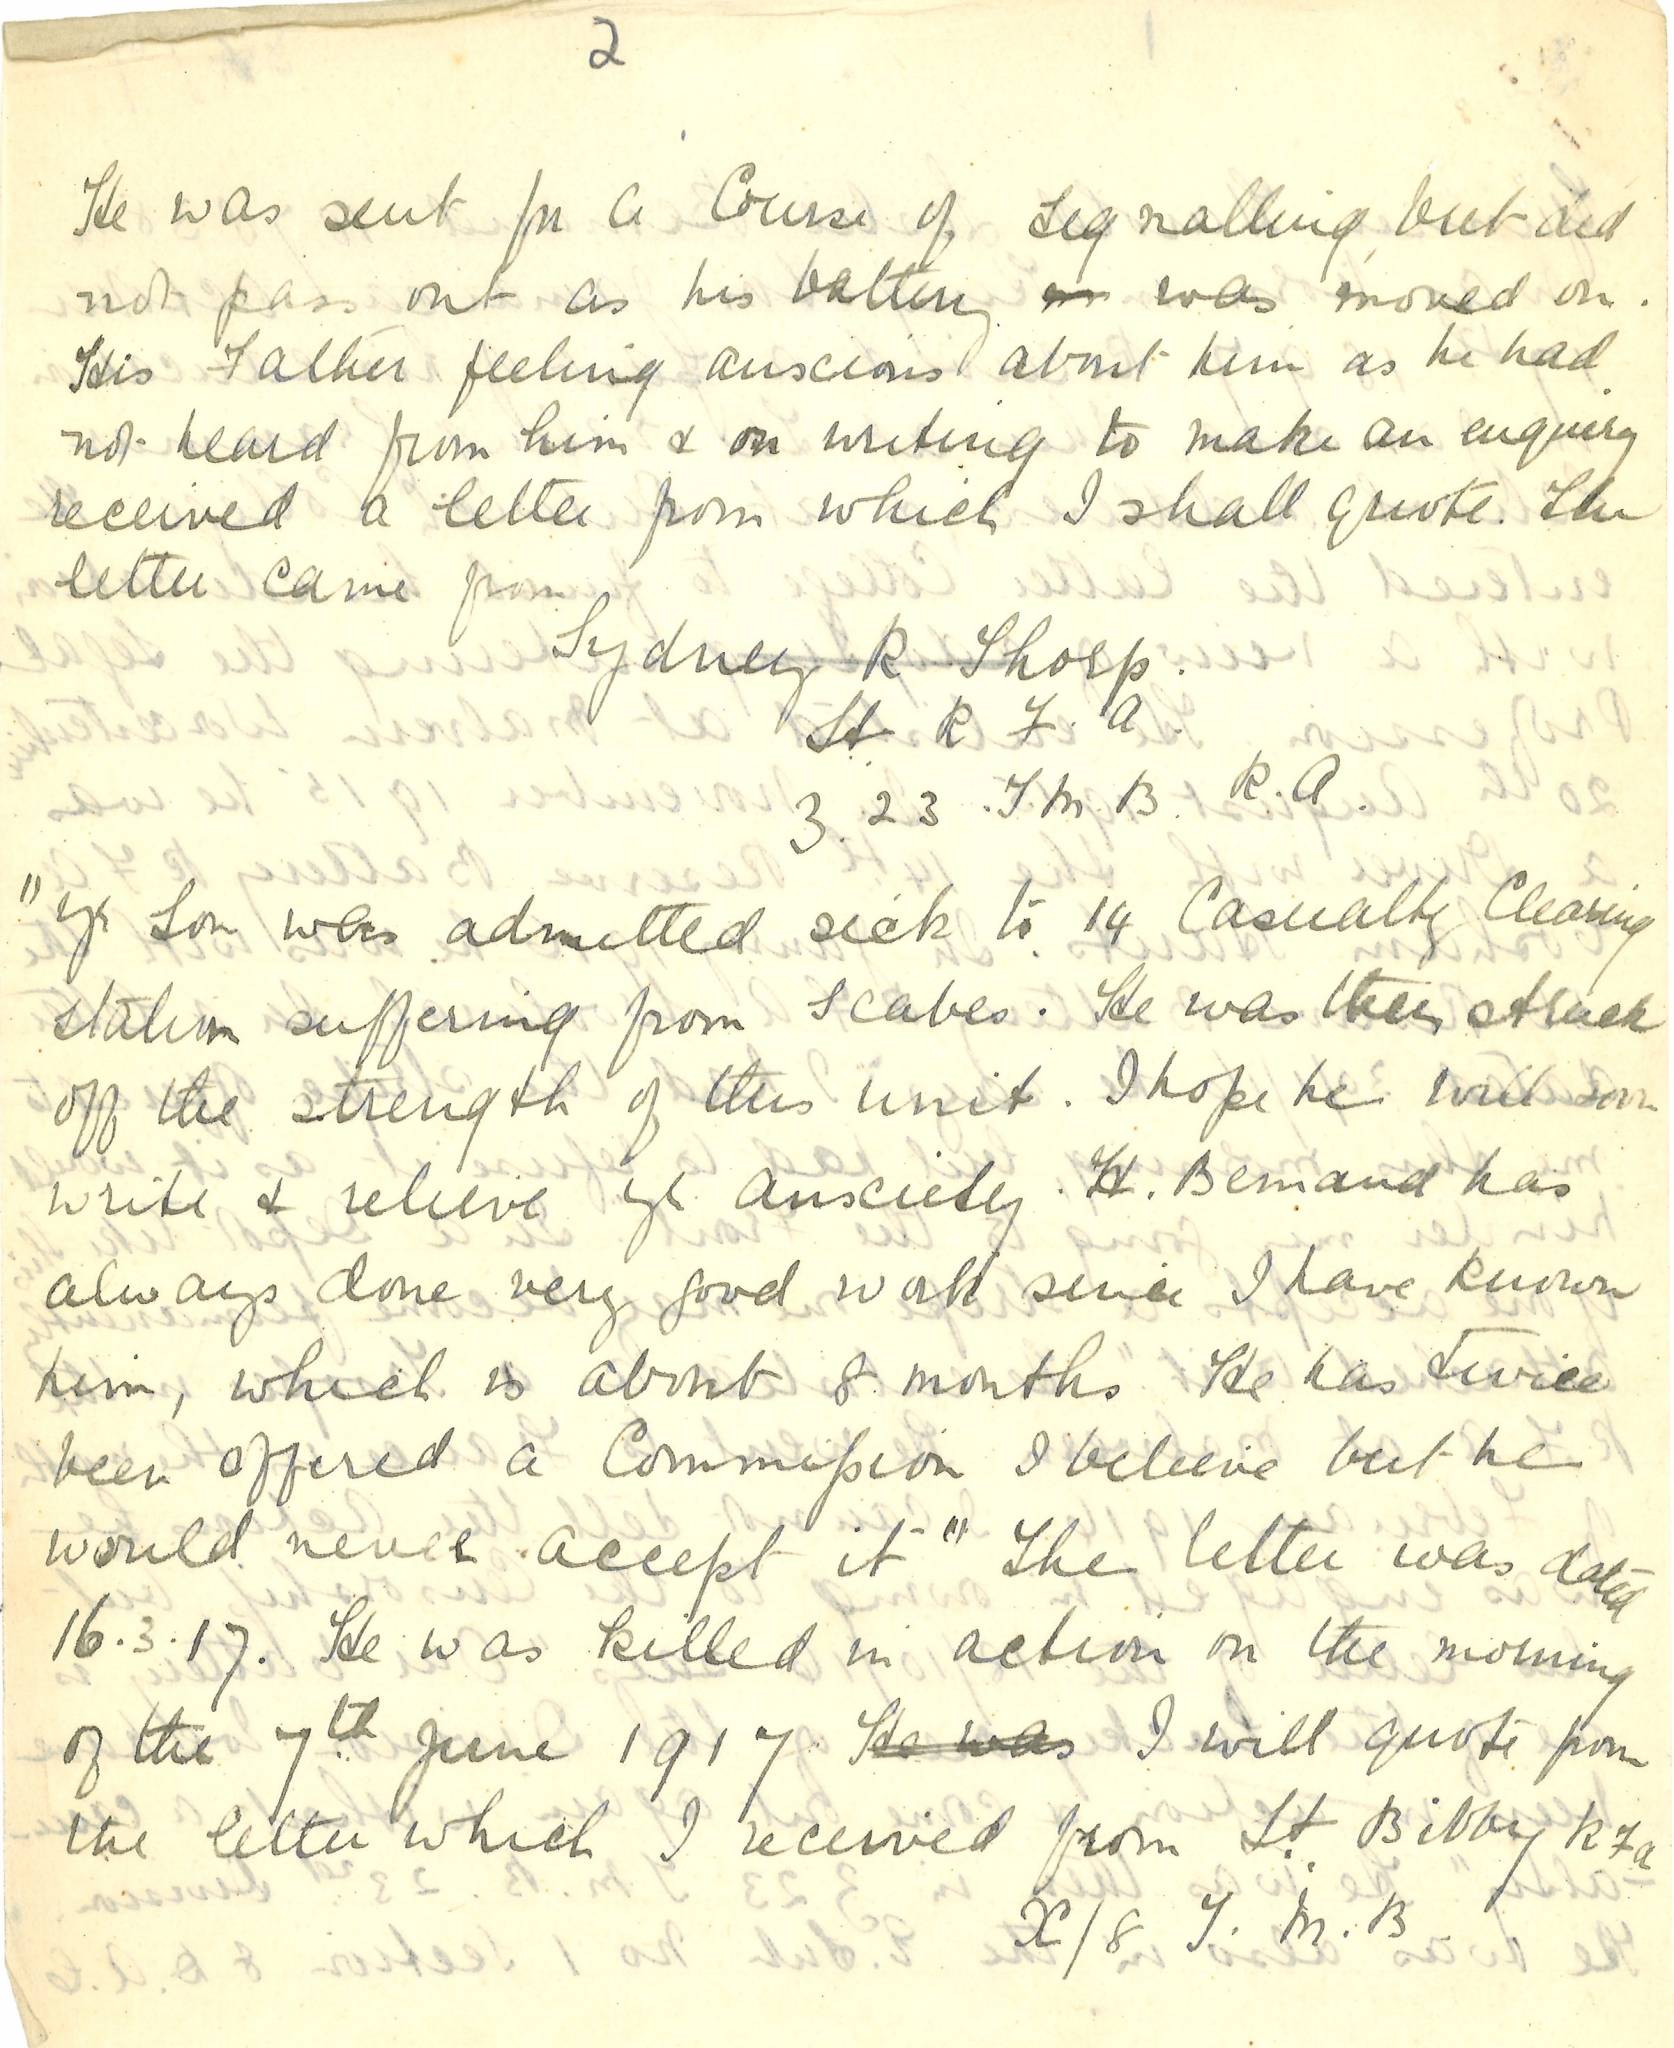 2
He was sent for a Course of Signalling, but did
not pass out as his battery was moved on.
His Father feeling anscious about him as he had
not heard from him & on writing to make an enquiry
received a letter from which I shall quote. The
letter came from
Sydney R Thorp.
Lt. R F. A.
3. 23 .T M B. R.A.
"Yr Son was admitted sick to 14 Casualty Clearing
station suffering from scabes. He was then struck
off the strength of this unit. I hope he will soon
write & relieve yr anxciety. H. Bernand has
always done very good work since I have known
him, which is about 8 months He has twice
been offered a Commission I believe but he
would never accept it" The letter was dated
16.3.17. He was killed in action on the morning
of the 7th June 1917 He was I will quote from
the letter which I received from Lt. Bibby R F A
X/8 T. M. B.